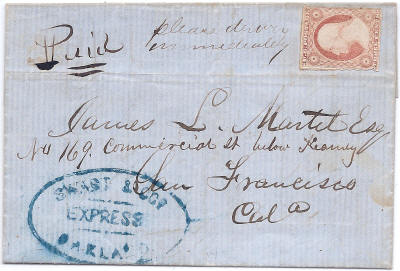 Paid
please deliver
immediately
James L. Martel Esq
No 169. Commercial st below Kearney
San Francisco
Cal a
& Co's
EXPRESS
OAKLAND